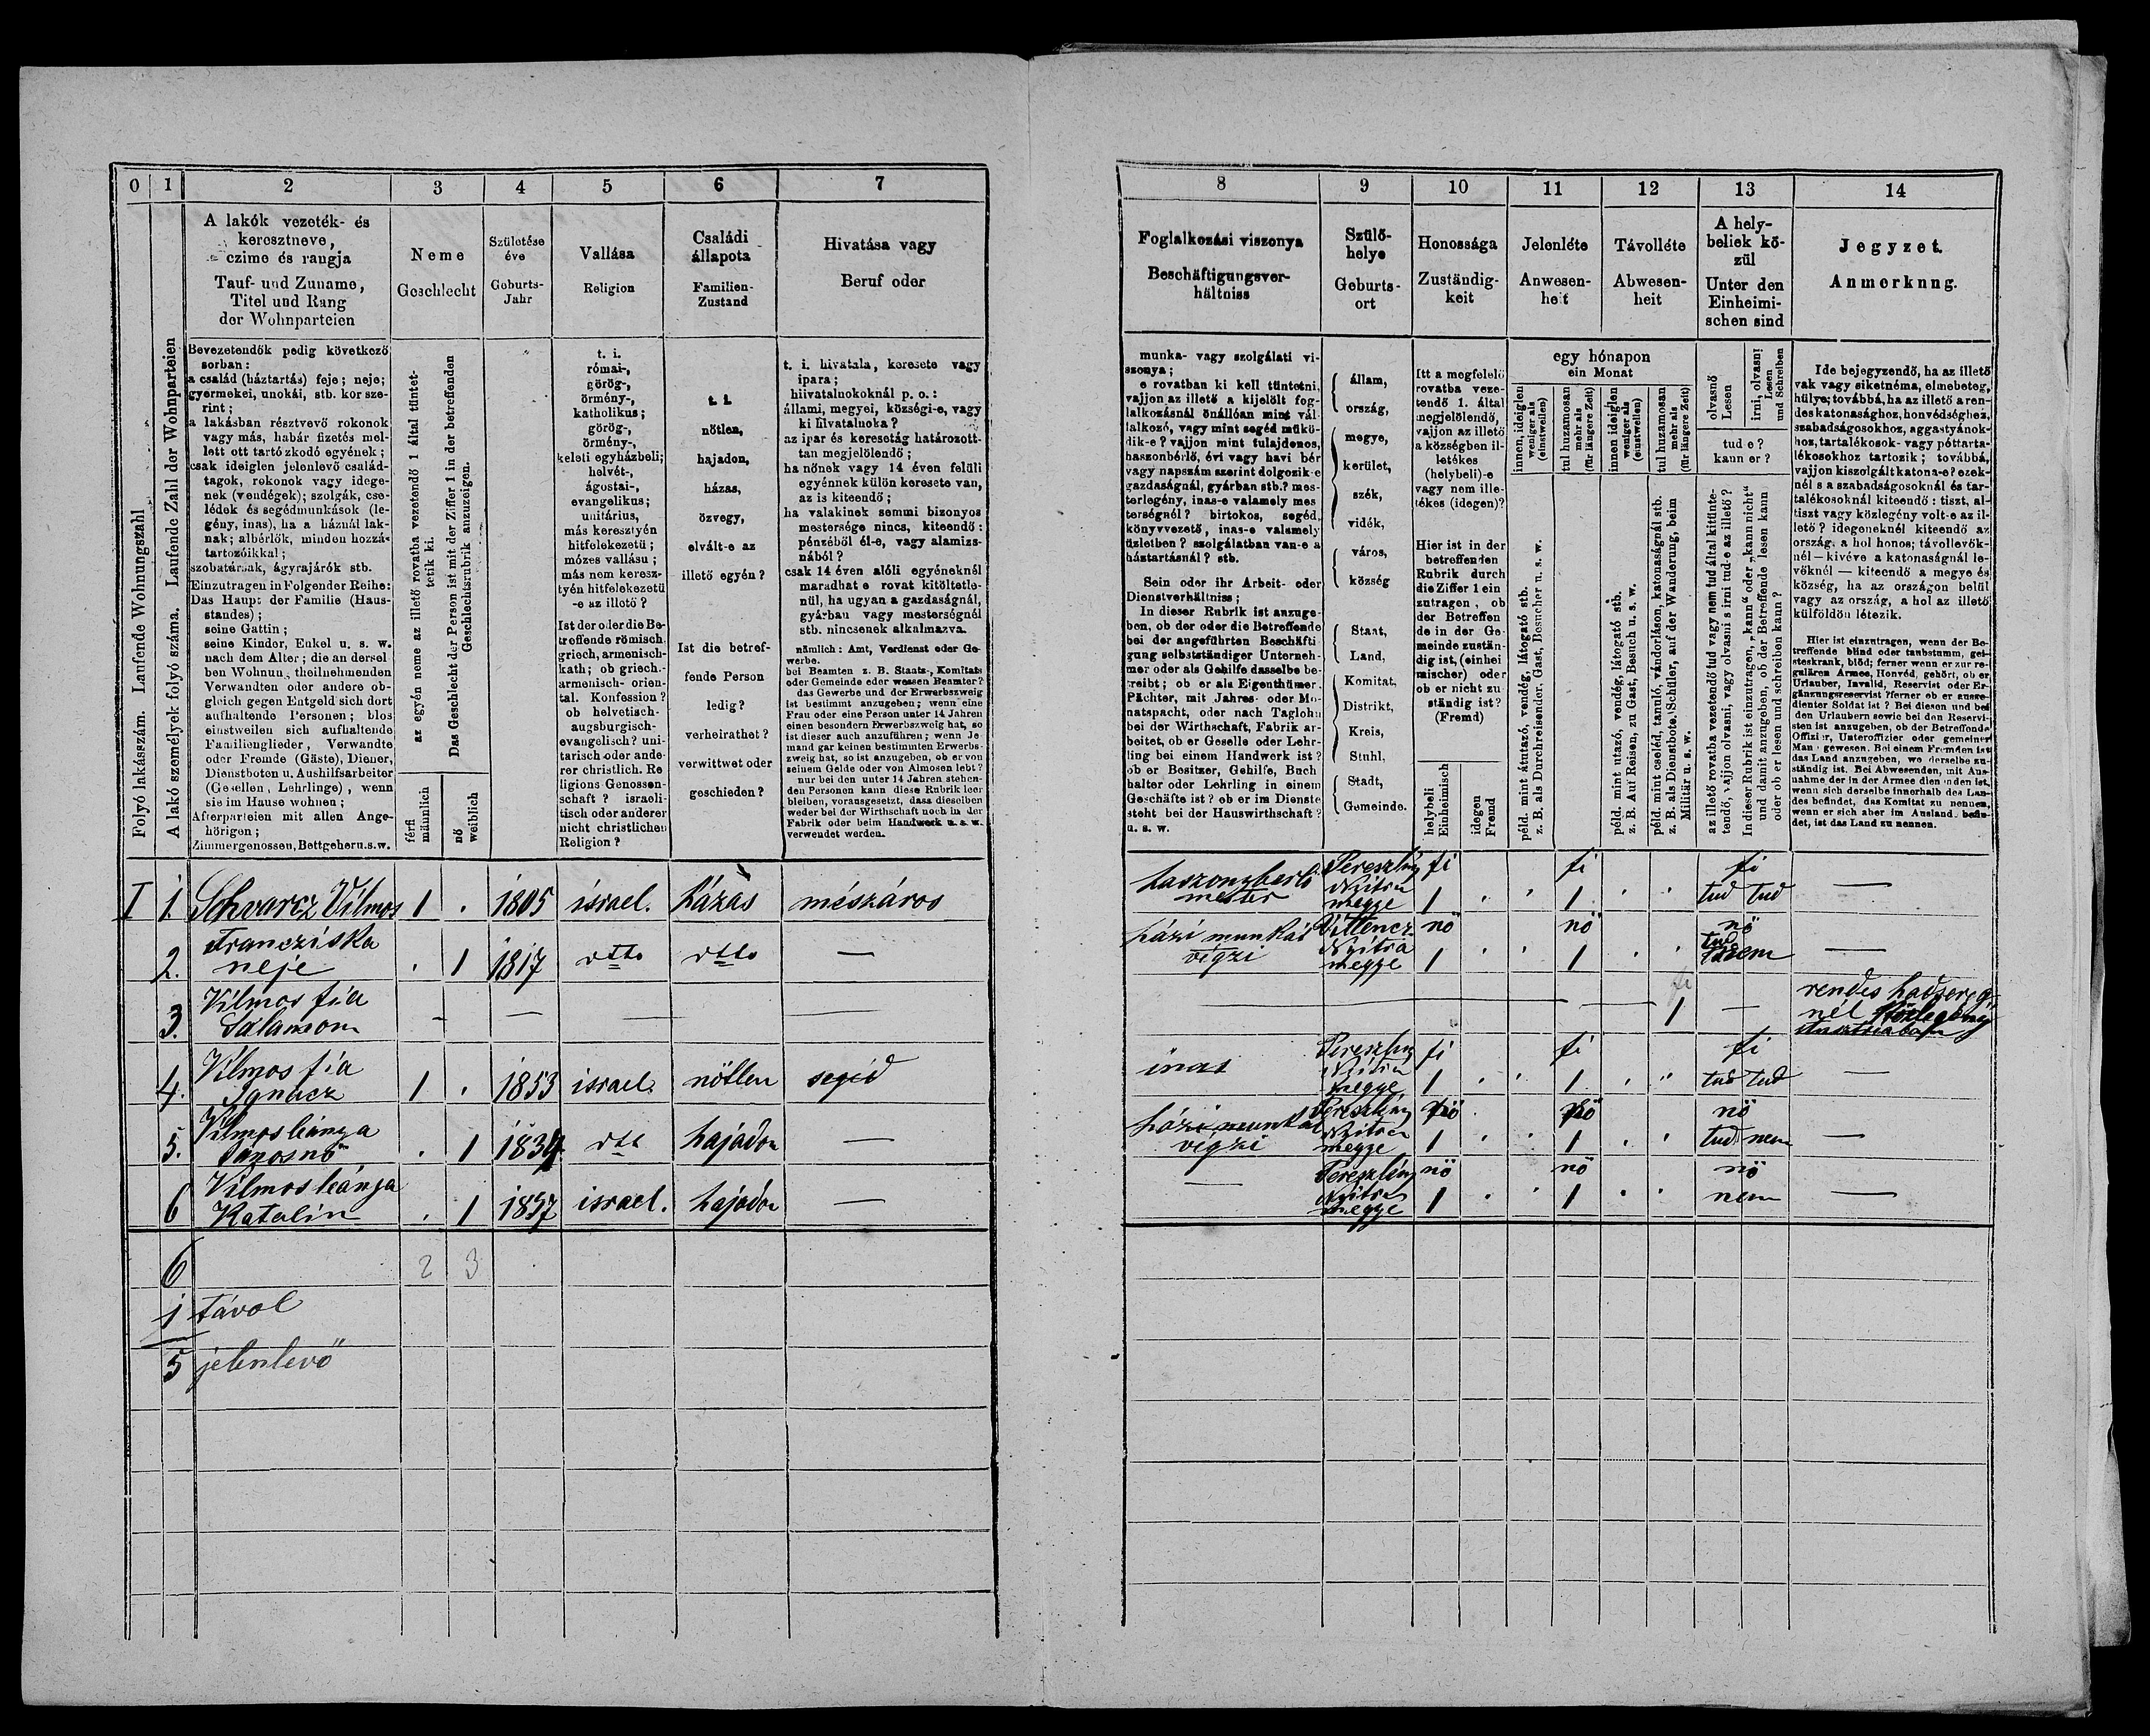 0 1 2 3 4 5 6 7
Folyó lakásszám. Laufende Wohnungszahl
A lakó személyek folyó száma. Laufende Zahl der Wohnparteien
A lakók vezeték- és
keresztneve,
czime és rangja
Tauf- und Zuname,
Titel und Rang
der Wohnparteien
Neme
Geschlecht
Születése
éve
Geburts-
Jahr
Vallása
Religion
Családi
állapota
Familien-
Zustand
Hivatása vagy
Beruf oder
Bevezetendők pedig következő
sorban:
a család (háztartás) feje; neje;
gyermekei, unokái, stb. kor sze-
rint;
a lakásban résztvevő rokonok
vagy más, habár fizetés mel-
lett ott tartózkodó egyének;
csak ideiglen jelenlevő család-
tagok, rokonok vagy idege-
nek (vendégek); szolgák, cse-
lédek és segédmunkások (le-
gény, inas), ha a háznál lak-
nak; albérlők, minden hozzá-
tartozóikkal;
szobatársak, ágyrajárók stb.
Einzutragen in Folgender Reihe:
Das Haupt der Familie (Haus-
standes);
seine Gattin;
seine Kinder, Enkel u. s. w.
nach dem Alter; die an dersel
ben Wohnun. theilnehmenden
Verwandten oder andere ob-
gleich gegen Entgeld sich dort
aufhaltende Personen; blos
einstweilen sich aufhaltende
Familienglieder, Verwandte
oder Fremde (Gäste), Diener,
Dienstboten u. Aushilfsarbeiter
(Gesellen, Lehrlinge), wenn
sie im Hause wohnen;
Afterparteien mit allen Ange-
hörigen;
Zimmergenossen, Bettgeher u.s.w.
az egyén neme az illető rovatba vezetendő 1 által tüntet-
tetik ki.
Das Geschlecht der Person ist mit der Ziffer 1 in der betreffenden
Geschlechsrubrik anzuzeigen.
férfi
männlich
nő
weiblich
t. i.
római-,
görög-,
örmény-,
katholikus;
görög-,
örmény-,
keleti egyházbeli;
helvét-,
ágostai-,
evangelikus;
unitárius,
más keresztyén
hitfelekezetü;
mózes vallásu;
más nem keresz-
tyén hitfelekezetü
-e az illető?
Ist der oder die Be-
treffende römisch
griech, armenisch-
kath; ob griech.-
armenisch- orien-
tal. Konfession?
ob helvetisch-
augsburgisch-
evangelisch? uni-
tarisch oder ande-
rer christlich. Re
ligions Genossen-
schaft? israeli-
tisch oder anderer
nicht christlichen
Religion?
t. i.
nőtlen,
hajadon,
házas,
özvegy,
elvált-e az
illető egyén?
Ist die betref-
fende Person
ledig?
verheirathet?
verwittwet oder
geschieden?
t. i. hivatala, keresete vagy
ipara;
hiivatalnokoknál p. o.:
állami, megyei, községi-e, vagy
ki hivatalnoka?
az ipar és keresetág határozott-
tan megjelölendő;
ha nőnek vagy 14 éven felüli
egyénnek külön keresete van,
az is kiteendő;
ha valakinek semmi bizonyos
mestersége nincs, kiteendő:
pénzéből él-e, vagy alamizs-
nából?
csak 14 éven alóli egyéneknél
maradhat e rovat kitöltetle-
nül, ha ugyan a gazdaságnál,
gyárban vagy mesterségnél
stb. nincsenek alkalmazva.
nämlich: Amt, Verdienst oder Ge-
werbe.
bei Beamten z. B. Staats-, Komitats
oder Gemeinde oder wessen Beamter?
das Gewerbe und der Erwerbszweig
ist bestimmt anzugeben; wenn eine
Frau oder eine Person unter 14 Jahren
einen besondern Erwerbszweig hat, so
ist dieser auch anzuführen; wenn Je
mand gar keinen bestimmten Erwerbs-
zweig hat, so ist anzugeben, ob er von
seinem Gelde oder von Almosen lebt?
nur bei den unter 14 Jahren stehen-
den Personen kann diese Rubrik leer
bleiben, vorausgesetzt, dass dieselben
weder bei der Wirthschaft noch in der
Fabrik oder beim Handwerk u. s. w.
verwendet werden.
I 1. Schvarcz Vilmos 1 . 1805 israel. házas mészáros
2. Francziska
neje . 1 1817 dtto dtto —
3. Vilmos fia
Salamon — — — —
4. Vilmos fia
Ignácz 1 . 1853 israel. nőtlen segéd
5. Vilmos leánya
. 1 dtt hajadon —
6 Vilmos leánya
Katalin . 1 1857 israel. hajadon —
6 2 3
1 távol
5 jelenlevő
8 9 10 11 12 13 14
Foglalkozási viszonya
Beschäftigungsver-
hältniss
Szülő-
helye
Geburts-
ort
Honossága
Zuständig-
keit
Jelenléte
Anwesen-
heit
Távolléte
Abwesen-
heit
A hely-
beliek kö-
zül
Unter den
Einheimi-
schen sind
Jegyzet.
Anmerknng.
munka- vagy szolgálati vi-
szonya;
e rovatban ki kell tüntetni,
vajjon az illető a kijelölt fog-
lalkozásnál önállóan mint vál-
lalkozó, vagy mint segéd mükö-
dik-e? vajjon mint tulajdonos,
haszonbérlő, évi vagy havi bér
vagy napszám szerint dolgozik-e
gazdaságnál, gyárban stb.? mes-
terlegény, inas-e valamely mes
terségnél? birtokos, segéd,
könyvvezető, inas-e valamely
üzletben? szolgálatban van-e a
háztartásnál? stb.
Sein oder ihr Arbeit- oder
Dienstverhältniss;
In dieser Rubrik ist anzuge-
ben, ob der oder die Betreffende
bei der angeführten Beschäfti
gung selbstständiger Unterneh-
mer oder als Gehilfe dasselbe be-
treibt; ob er als Eigenthümer,
Pächter, mit Jahres- oder Mo-
natspacht, oder nach Taglohn
bei der Wirthschaft, Fabrik ar-
beitet, ob er Geselle oder Lehr-
ling bei einem Handwerk ist?
ob er Besitzer, Gehilfe, Buch
halter oder Lehrling in einem
Geschäfte ist? ob er im Dienste
steht bei der Hauswirthschaft?
u. s. w.
állam,
ország,
megye,
kerület,
szék,
vidék,
város,
község
Staat,
Land,
Komitat,
Distrikt,
Kreis,
Stuhl,
Stadt,
Gemeinde.
Itt a megfelelő
rovatba veze-
tendő 1. által
megjelölendő,
vajjon az illető
a községben il-
letékes
(helybeli)-e
vagy nem ille-
tékes (idegen)?
Hier ist in der
betreffenden
Rubrik durch
die Ziffer 1 ein
zutragen, ob
der Betreffen
de in der Ge-
meinde zustän-
dig ist, (einhei
mischer) oder
ob er nicht zu-
ständig ist?
(Fremd)
helybeli
Einheimisch
idegen
Fremd
egy hónapon
ein Monat
innen, ideiglen
weniger als
(einstweilen)
tul huzamosan
mehr als
(für längere Zeit)
innen ideiglen
weniger als
(einstweilen)
tul huzamosan
mehr als
(für längere Zeit)
péld. mint átutazó, vendég, látogató stb.
z. B. als Durchreisender, Gast, Besucher u. s. w.
péld. mint utazó, vendég, látogató stb.
z. B. Auf Reisen, zu Gast, Besuch u. s. w.
péld. mint cseléd, tanuló, vándorláson, katonaságnál stb.
z. B. als Dienstbote, Schüler, auf der Wanderung, beim
Militär u. s. w.
olvasnő
Lesen
irni, olvasni
Lesen
und Schreiben
tud e?
kann er?
az illető rovatba vezetendő tud vagy nem tud által kitünte-
tendő, vajjon olvasni, vagy olvasni s irni tud-e az illető?
In dieser Rubrik ist einzutragen, „kann" oder „kann nicht"
und damit anzugeben, ob der Betreffende lesen kann
oder ob er lesen und schreiben kann?
Ide bejegyzendő, ha az illető
vak vagy siketnéma, elmebeteg,
hülye; továbbá, ha az illető a ren-
des katonasághoz, honvédséghez,
szabadságosokhoz, aggastyánok-
hoz, tartalékosok- vagy póttarta-
lékosokhoz tartozik; továbbá,
vajjon kiszolgált katona-e? ezek-
nél s a szabadságosoknál és tar-
talékosoknál kiteendő: tiszt, al-
tiszt vagy közlegény volt-e az il-
lető? idegeneknél kiteendő az
ország, a hol honos; távollevők-
nél — kivéve a katonaságnál le-
vőknél — kiteendő a megye és
község, ha az országon belül
vagy az ország, a hol az illető
külföldön létezik.
Hier ist einzutragen, wenn der Be-
treffende blind oder taubstumm, gei-
steskrank, blöd; ferner wenn er zur re-
gulären Armee, Honvéd, gehört, ob er
Urlauber, Invalid, Reservist oder Er-
gänzungsreservist? ferner ob er ausge-
dienter Soldat ist? Bei diesen und bei
den Urlaubern sowie bei den Reservi-
sten ist anzugeben, ob der Betreffende
Offizier, Unteroffizier oder gemeiner
Mann gewesen. Bei einem Fremden ist
das Land anzugeben, wo derselbe zu-
ständig ist. Bei Abwesenden, mit Aus-
nahme der in der Armee dienenden ist,
wenn sich derselbe innerhalb des Lan-
des befindet, das Komitat zu nennen,
wenn er sich aber im Ausland befin-
det, ist das Land zu nennen.
haszonbérlő
mester
Pereszlény
Nyitra
megye
fi 1 . . fi 1 . . fi tud tud —
házi munkát
végzi
Vittencz
Nyitra
megye
nő 1 . . nő 1 . . nő tud nem —
fi 1 —
rendes hadsereg-
nél közlegény
inas
Pereszlény
Nyitra
megye
fi 1 . . fi 1 . . fi tud tud —
házi munkát
végzi
Pereszlény
Nyitra
megye
nő 1 . . nő 1 . . nő tud nem —
—
Pereszlény
Nyitra
megye
nő 1 . . nő 1 . . nő nem —